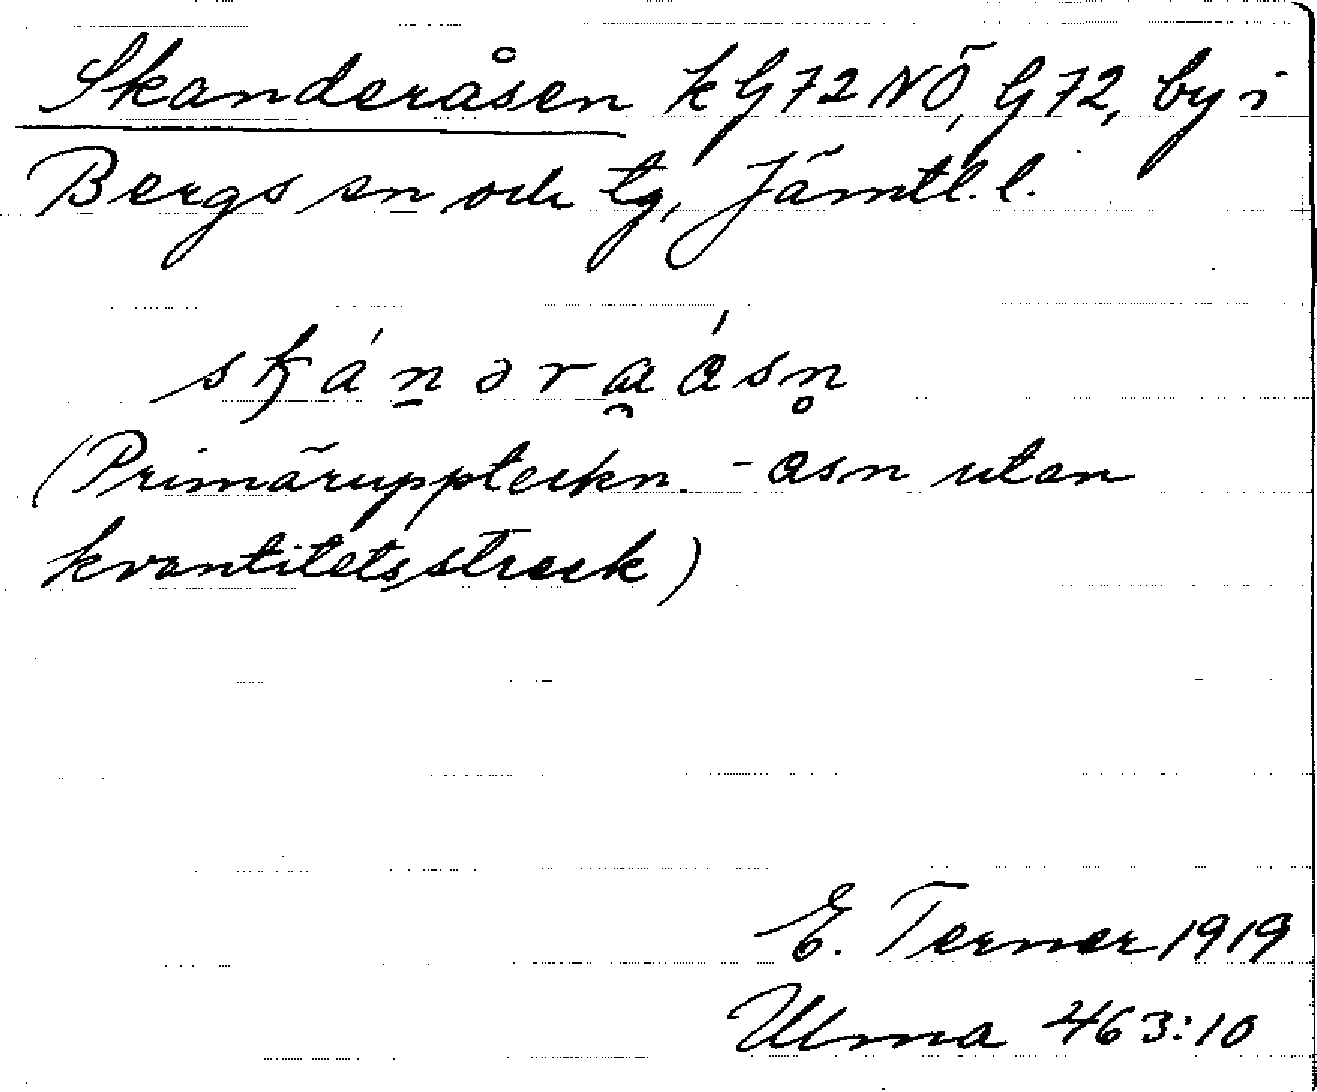 Skanderåsen kG72NÖ, G72, by i
Bergs sn och tg, Jämtl. l.
(Primäruppteckn. -asn utan
kvantitetsstreck)
E. Terner 1919
Ulma 463:10